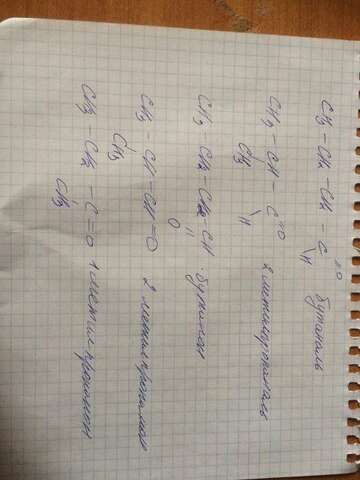 CH3 - CH2 - CH2 - C =O H бутаналь
CH3 - CH - C =O H
CH3
CH3 - CH2 - CH2 CH бутанон
O
CH3 - CH - CH = O 2 метилпропаналь
CH3
CH3 - CH2 - C = O 1 метил пропанон
CH3